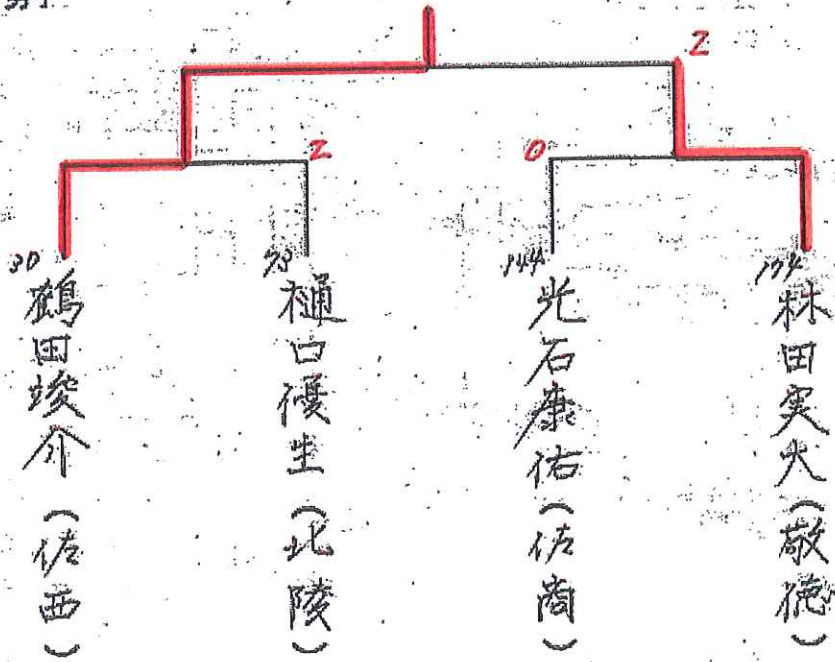 2
2
0
30
鶴田竣介（佐西）
73
樋口優生（北陵）
144
光石康佑（佐商）
林田実大（敬徳）